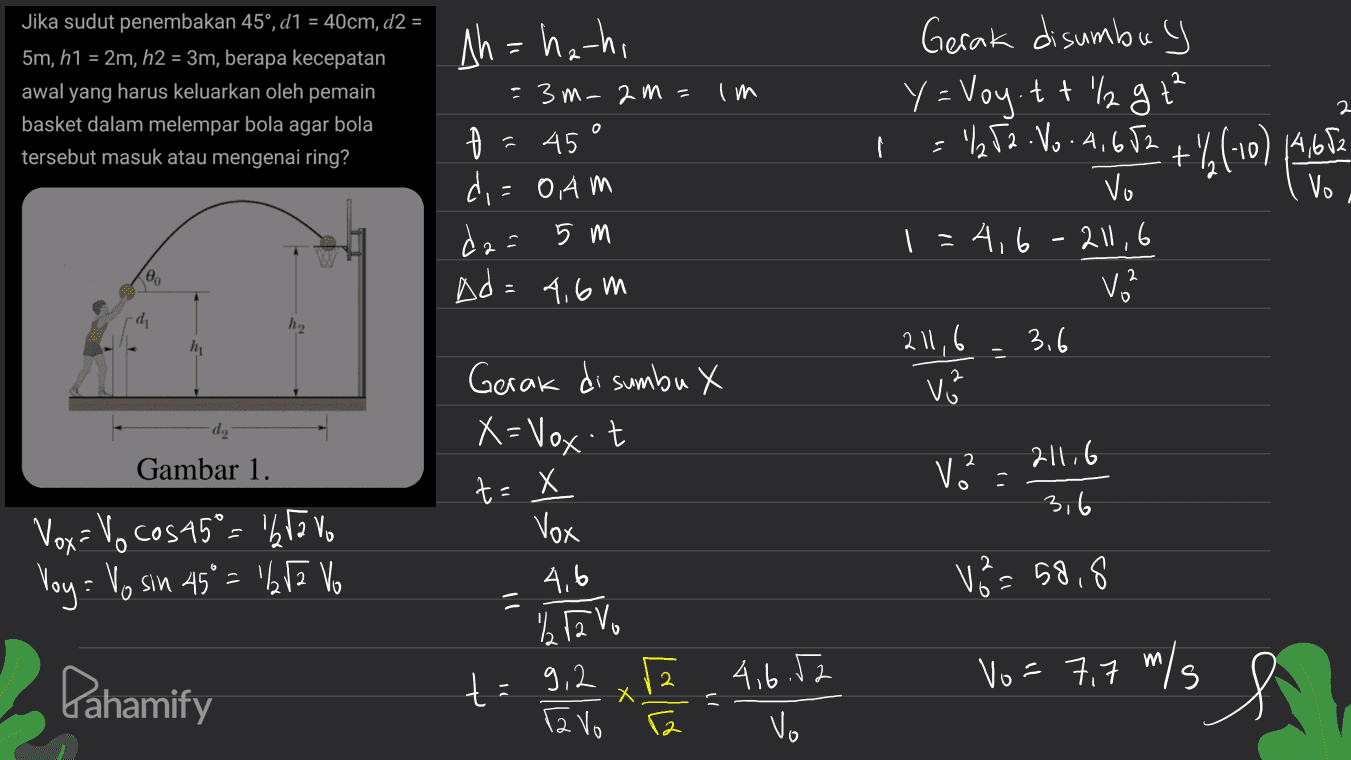 Jika sudut penembakan 45°, d1 = 40cm, d2 =
5m, h1 = 2m, h2 = 3m, berapa kecepatan
awal yang harus keluarkan oleh pemain
basket dalam melempar bola agar bola
tersebut masuk atau mengenai ring?
θ₀
d₁
h₁
h₂
d₂
Gambar 1.
Vox = Vo cos 45° = ½√2 Vo
Voy = Vo sin 45° = ½√2 Vo
Pahamify
Δh = h₂-h₁
= 3m - 2m = 1m
θ = 45°
d₁ = 0,4 m
d₂ = 5 m
Δd = 4,6 m
Gerak di sumbu X
X = Vox . t
t = X / Vox
= 4,6 / ½√2 Vo
t = 9,2 / √2 Vo × √2 / √2 = 4,6.√2 / Vo
Gerak disumbu y
Y = Voy.t + ½ g t²
1 = ½√2 . Vo . 4,6√2 / Vo + ½ (-10) (4,6√2 / Vo)²
1 = 4,6 - 211,6 / Vo²
211,6 / Vo² = 3,6
Vo² = 211,6 / 3,6
Vo² = 58,8
Vo = 7,7 m/s